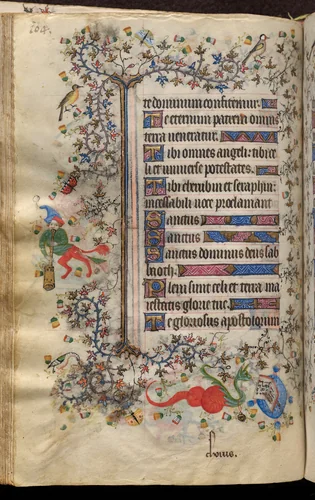 104.
te dominum confitemur.
Te eternum patrem omnis
terra ueneratur.
Tibi omnes angeli: tibi ce
li et uniuerse potestates.
Tibi cherubin et seraphin:
incessabili uoce proclamant
Sanctus
Sanctus
Sanctus dominus deus sab
aoth:
Pleni sunt celi et terra ma
iestatis glorie tue.
Te gloriosus apostolorum
chorus.